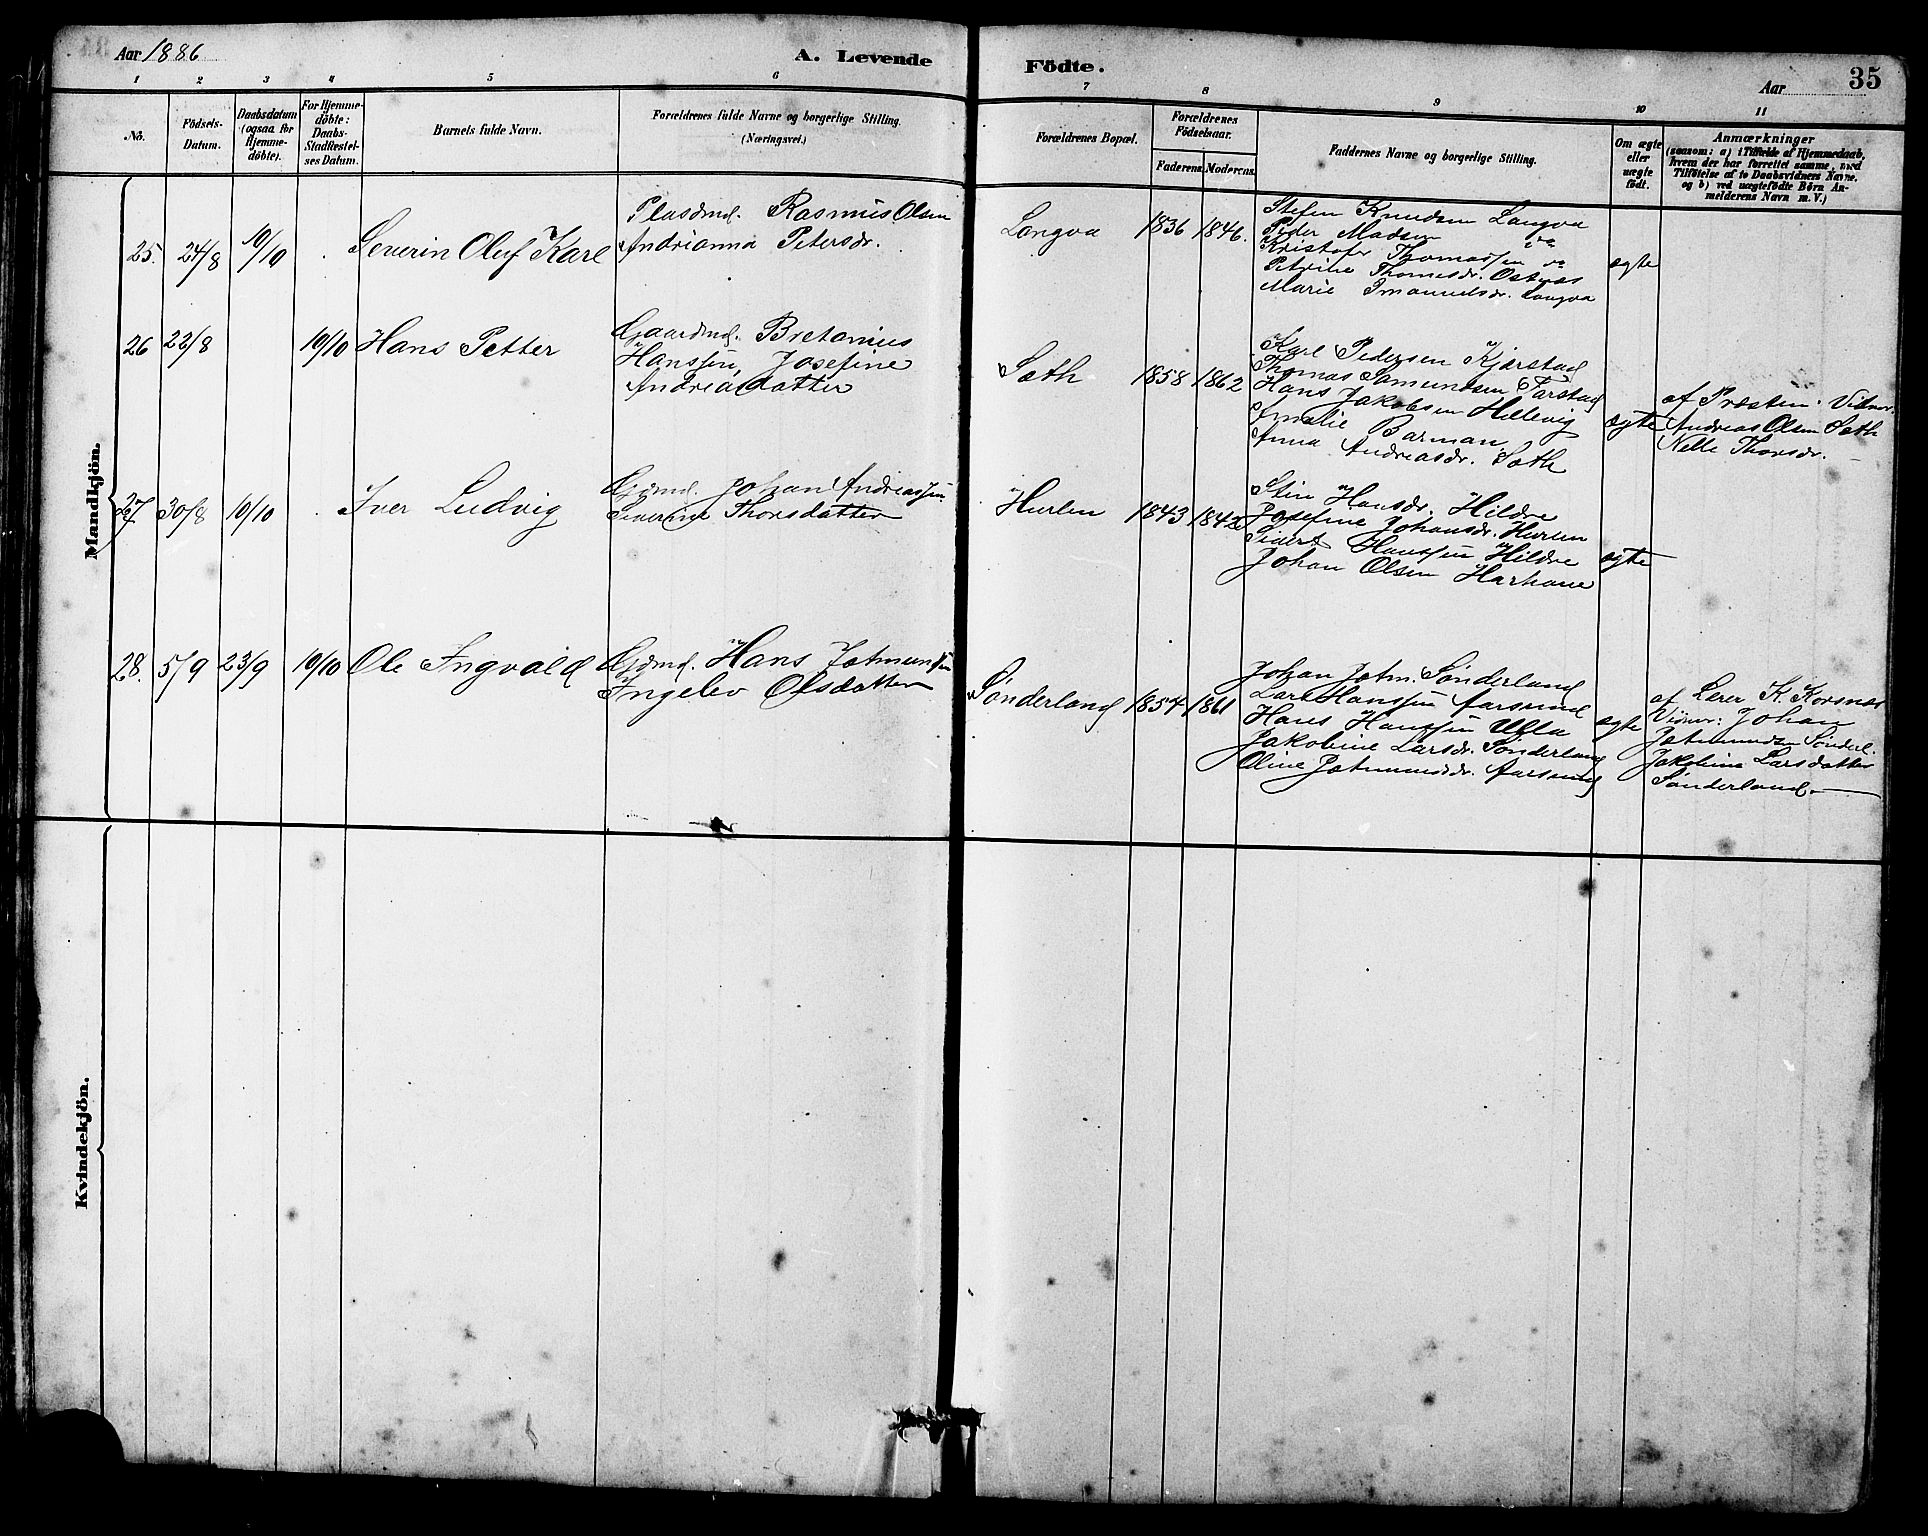 Aar 1886
A. Levende
Födte.
Aar
35
1 2 3 4 5 6 7 8 9 10 11
No.
Födsels-
Datum.
Daabsdatum
(ogsaa for
Hjemme-
döbte).
For Hjemme-
döbte:
Daabs-
Stadfæstel-
ses Datum.
Barnets fulde Navn.
Forældrenes fulde Navne og borgerlige Stilling.
(Næringsvei.)
Forældrenes Bopæl.
Forældrenes
Födselsaar.
Faderens. Moderens.
Faddernes Navne og borgerlige Stilling.
Om ægte
eller
uægte
født.
Anmærkninger
(saasom: a) i Tilfælde af Hjemmedaab,
hvem der har forrettet samme, med
Tilföielse af to Daabsvidners Navne,
og b) ved uægtefödte Börn An-
melderens Navn m. V.)
Mandkjön.
25. 24/8 10/10 Severin Oluf Karl
Pladsmd. Rasmus Olsen
Andrianna Petersdr.
Longva 1836 1846.
Stefen Knudsen Longva
Peder Madsen
Kristofer Thomassen
Petrine Thomesdr. Østnæs
Marie Imanuelsdr. Longva
ægte
26 22/8 10/10 Hans Petter
Gaardmd. Bretanius
Hanssen, Josefine
Andreasdatter
Sæth 1858 1862
Karl Pedersen Kjærstad
Thomas Samundsen Farstad
Hans Jakobsen Hellevig
Amalie Barman
Anna Andreasdr. Sæth
ægte
af Præsten. Vidner:
Andreas Olsen Sæth
Nelle Thorsdr.
27 30/8 10/10 Iver Ludvig
Gdmd. Johan Andreassen
Severine Thorsdatter
Hurlen 1843 1842
Stin Hansdr. Hildre
Josefine Johansdr. Hurlen
Sivert Hanssen Hildre
Johan Olsen Harhone
ægte
28. 5/9 23/9 10/10 Ole Ingvald
Gdmd. Hans Jetmundsen
Ingelev Olsdatter
Sønderland 1854 1861
Johan Jetm. Sønderland
Lars Hanssen Aarsund
Hans Hanssen Ulla
Jakobine Larsdr. Sønderland
Oline Jetmundsdr. Aarsund
ægte
af Lærer K. Korsnæs
Vidner: Johan
Jetmundsen Sønderl.
Jakobine Larsdatter
Sønderland.
Kvindekjön.